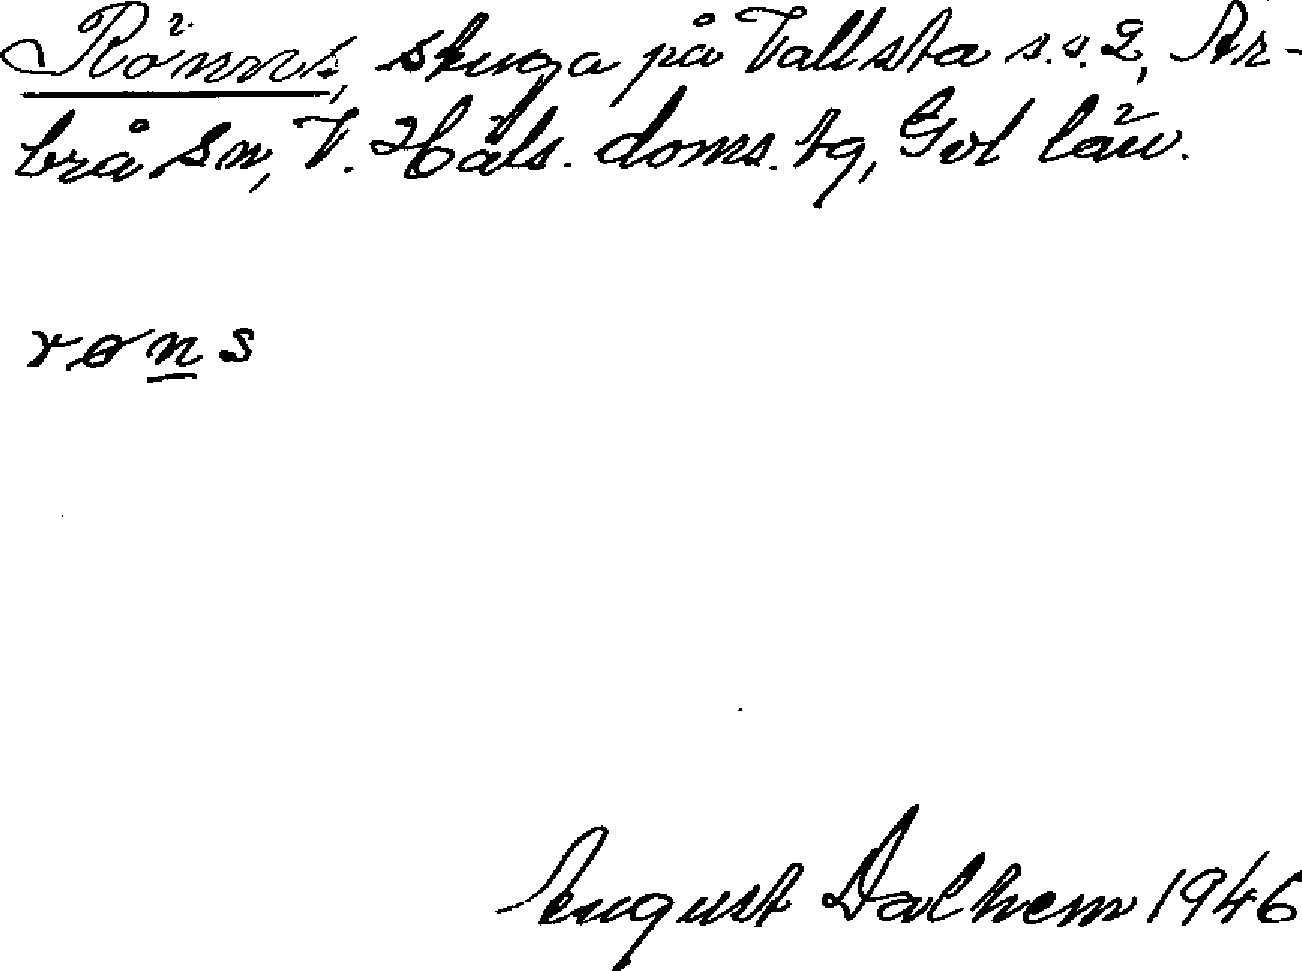 Rönns, stuga på Vallsta s.s. 2, Ar-
brå sn, V. Häls. doms. tg, Gvl län.
røns
August Dalhem 1946